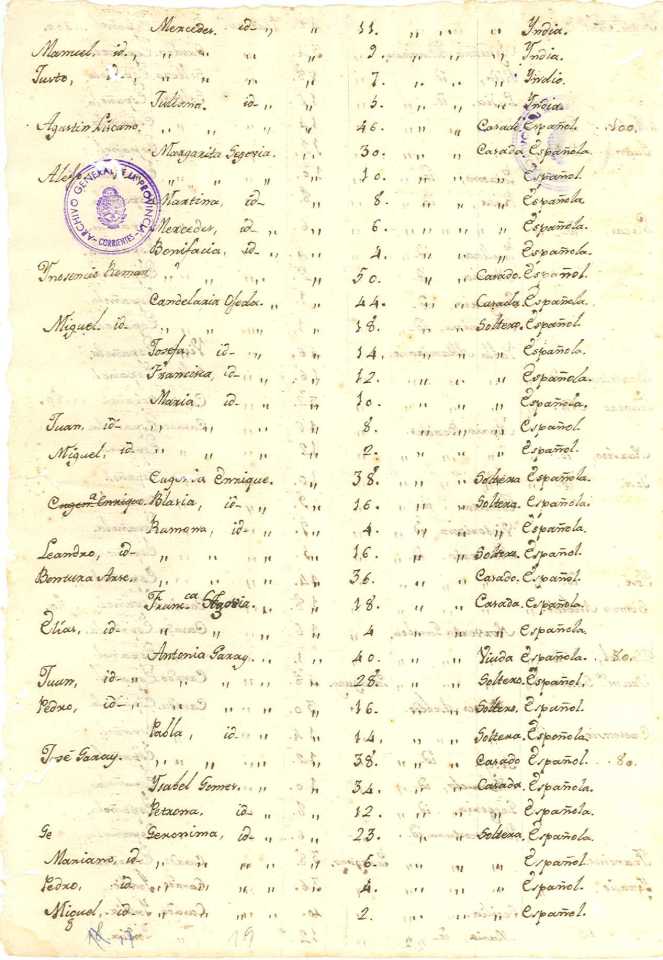 Mercedes. id- „ „ „ 11. „ „ „ Yndia.
Manuel. id. „ „ „ „ „ 9. „ „ „ Yndia.
Justo, id. „ „ „ „ „ 7. „ „ „ Yndio.
Juliana. id- „ „ „ 5. „ „ „ Yndia.
Agustin Liscano. „ „ „ „ „ 46. „ „ Casad. Español. 100.
Margarita Segovia. „ „ 30. „ „ Casada. Española.
„ „ „ „ „ 10. „ „ Español.
Martina, id- „ „ 8. „ „ Española.
Mercedes, id- „ „ 6. „ „ Española.
Bonifacia, id- „ „ 4. „ „ Española.
Ynosencio Roman „ „ „ „ 50. „ „ Casado. Español.
Candelaria Ojeda. „ „ 44. „ „ Casada. Española.
Miguel. id- „ „ „ „ „ 18. „ „ Soltero. Español.
Josefa, id- „ „ 14. „ „ Española.
Francisca, id- „ „ 12. „ „ Española.
Maria id- „ „ 10. „ „ Española.
Juan, id- „ „ „ „ „ 8. „ „ Español.
Miguel, id- „ „ „ „ „ 2. „ „ Español.
Eugenia Enrique. „ „ 38. „ „ Soltera. Española.
Eugen.ª Enrique. Blasia, id- „ „ 16. „ „ Soltera. Española.
Ramona, id- „ „ 4. „ „ Española.
Leandro, id- „ „ „ „ „ 16. „ „ Soltero. Español.
Bentura Arse. „ „ „ „ „ 36. „ „ Casado. Español.
Fran.ca Segovia. „ „ 18. „ „ Casada. Española.
Elias, id- „ „ „ „ „ 4. „ „ Español.
Antonia Garay. „ „ 40. „ „ Viuda Española. 80.
Juan, id- „ „ „ „ „ 28. „ „ Soltero. Español.
Pedro, id- „ „ „ „ „ 16. „ „ Soltero. Español.
Pabla, id- „ „ 14. „ „ Soltera. Española.
José Garay. „ „ „ „ „ 38. „ „ Casado Español. 80.
Ysabel Gomes. „ „ 34. „ „ Casada. Española.
Petrona, id- „ „ 12. „ „ Española.
Ge Geronima, id- „ „ 23. „ „ Soltera. Española.
Mariano, id- „ „ „ „ „ 6. „ „ Español.
Pedro, id- „ „ „ „ „ 4. „ „ Español.
Miguel, id- „ „ „ „ „ 2. „ „ Español.
8
19
ARCHIVO GENERAL DE LA PROVINCIA
CORRIENTES